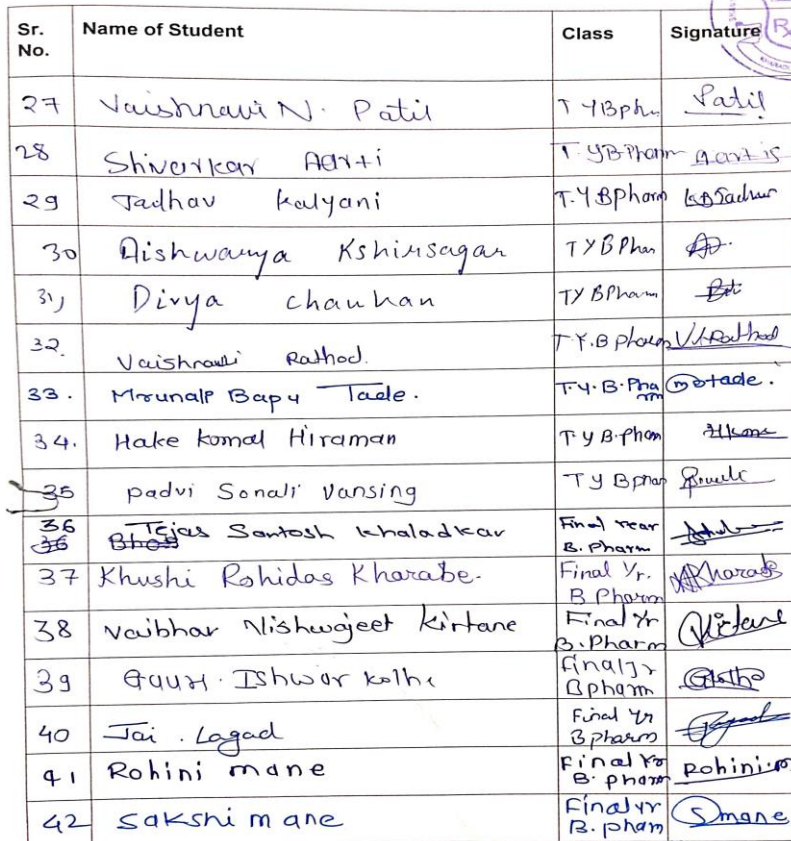 Sr. No. Name of Student Class Signature
27 Vaishnavi N. Patil T Y Bph Patil
28 Shiverkar Aarti T. Y B Pharm aartis
29 Jadhav Kalyani T.Y BPharm
30 Aishwarya Kshirsagar T Y B Phar
31, Divya chauhan TY BPharm
32. Vaishnavi Rathod. T.Y.B pharm V.Rathod
33. Mrunali Bapu Tade. T.Y.B.Pharm motade.
34. Hake komal Hiraman T.Y B.pham
35 padvi Sonali Vansing T Y Bphar
36 Tejas Santosh Khaladkar Final Year B. Pharm
37 Khushi Rohidas Kharabe. Final Yr. B Pharm
38 Vaibhav Vishwajeet Kirtane Final Yr B.Pharm
39 Gauri. Ishwar kolhe Final Yr Bpharm
40 Jai. Lagad Final Yr Bpharm
41 Rohini mane Final Yr B. pharm Rohini.m
42 Sakshi mane Final yr B. pham Smane